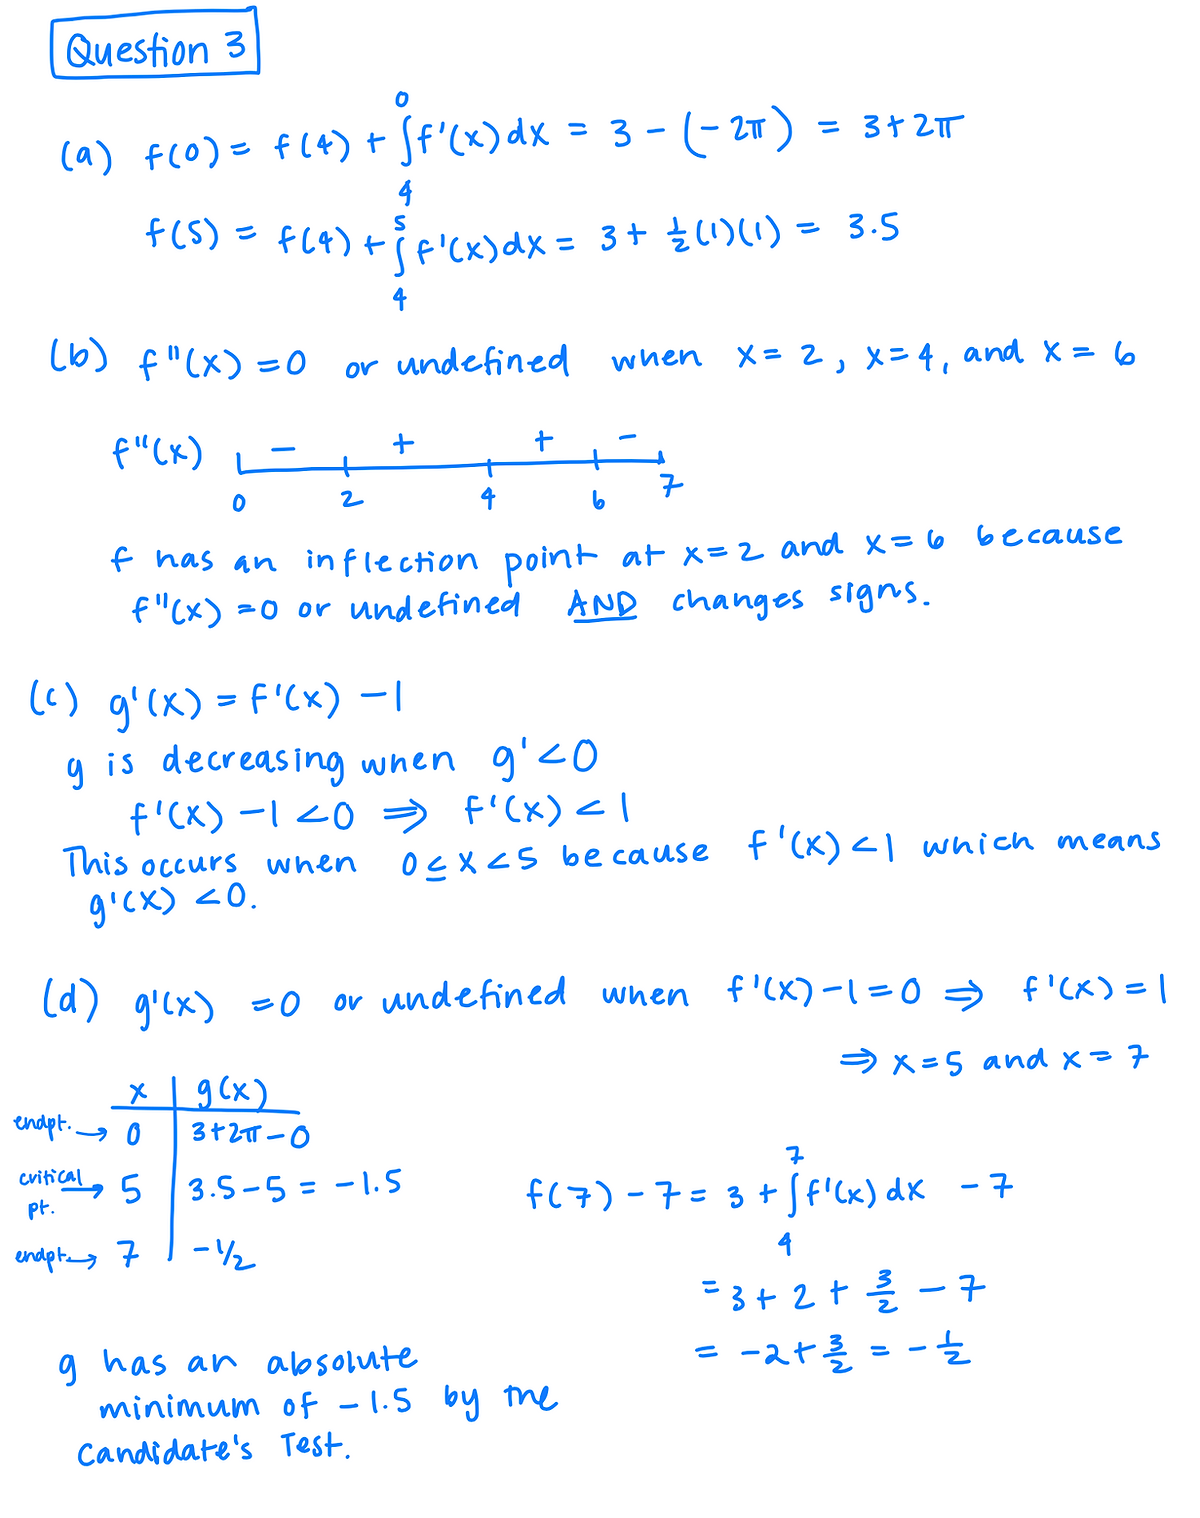 Question 3
(a) f(0) = f(4) + ∫₄⁰ f'(x) dx = 3 - (-2π) = 3 + 2π
f(5) = f(4) + ∫₄⁵ f'(x) dx = 3 + ½(1)(1) = 3.5
(b) f"(x) = 0 or undefined when x = 2, x = 4, and x = 6
f"(x) - + + -
0 2 4 6 7
f has an inflection point at x = 2 and x = 6 because
f"(x) = 0 or undefined AND changes signs.
(c) g'(x) = f'(x) - 1
g is decreasing when g' < 0
f'(x) - 1 < 0 ⇒ f'(x) < 1
This occurs when 0 ≤ x < 5 because f'(x) < 1 which means
g'(x) < 0.
(d) g'(x) = 0 or undefined when f'(x) - 1 = 0 ⇒ f'(x) = 1
⇒ x = 5 and x = 7
x | g(x)
endpt. → 0 | 3 + 2π - 0
critical pt. → 5 | 3.5 - 5 = -1.5
endpt. → 7 | -1/2
f(7) - 7 = 3 + ∫₄⁷ f'(x) dx - 7
= 3 + 2 + 3/2 - 7
= -2 + 3/2 = -1/2
g has an absolute
minimum of -1.5 by the
Candidate's Test.